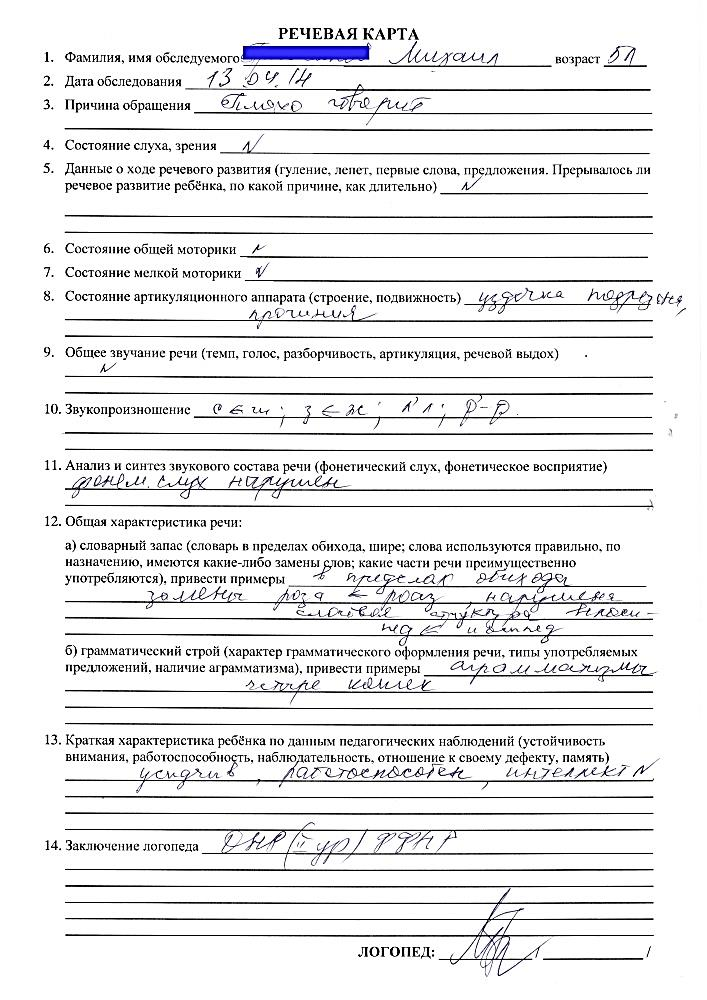 РЕЧЕВАЯ КАРТА
1. Фамилия, имя обследуемого Михаил возраст 5л
2. Дата обследования 13.04.14
3. Причина обращения Плохо говорит
4. Состояние слуха, зрения N
5. Данные о ходе речевого развития (гуление, лепет, первые слова, предложения. Прерывалось ли
речевое развитие ребёнка, по какой причине, как длительно) N
6. Состояние общей моторики N
7. Состояние мелкой моторики N
8. Состояние артикуляционного аппарата (строение, подвижность) уздечка
9. Общее звучание речи (темп, голос, разборчивость, артикуляция, речевой выдох)
N
10. Звукопроизношение с ← ш; з ← ж; р-р.
11. Анализ и синтез звукового состава речи (фонетический слух, фонетическое восприятие)
фонем. слух нарушен
12. Общая характеристика речи:
а) словарный запас (словарь в пределах обихода, шире; слова используются правильно, по
назначению, имеются какие-либо замены слов; какие части речи преимущественно
употребляются), привести примеры в пределах обихода
замены роза ← роаз, нарушена
слоговая структура велоси-
пед ←
б) грамматический строй (характер грамматического оформления речи, типы употребляемых
предложений, наличие аграмматизма), привести примеры аграмматизмы
четыре кошек
13. Краткая характеристика ребёнка по данным педагогических наблюдений (устойчивость
внимания, работоспособность, наблюдательность, отношение к своему дефекту, память)
усидчив, работоспособен, интеллект N
14. Заключение логопеда ОНР (II ур) ФФНР
ЛОГОПЕД: / /